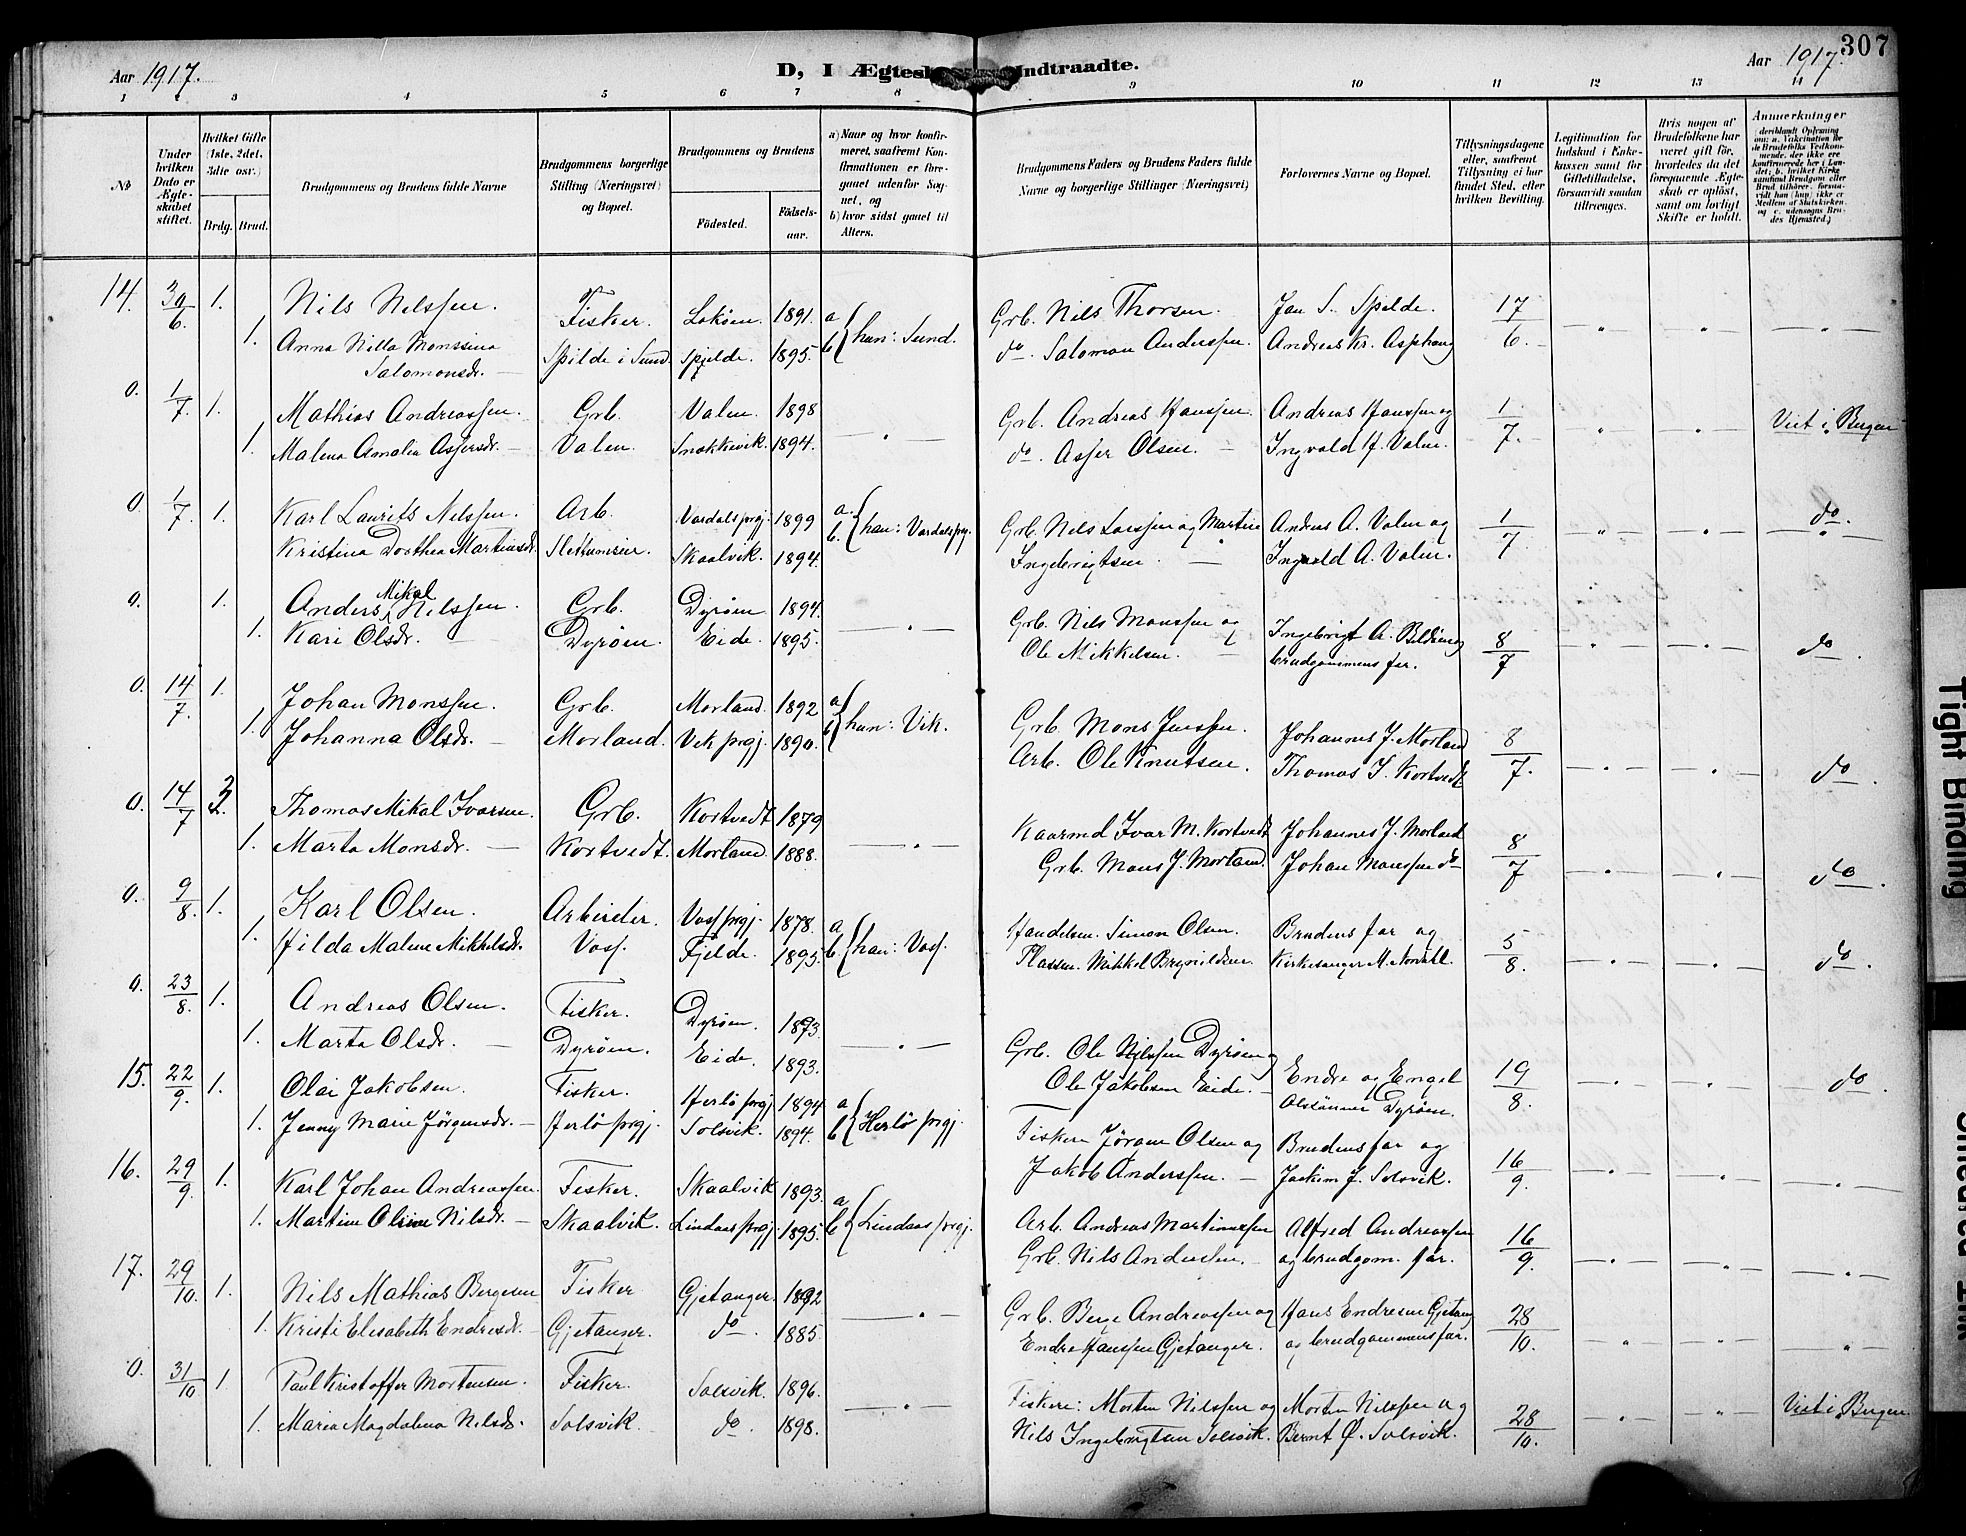 307
Aar 1917.
D, I Ægtesk Indtraadte.
Aar 1917.
1 2 3 4 5 6 7 8 9 10 11 12 13 14
No
Under hvilken Dato er Ægteskabet stiftet.
Hvilket Gifte (1ste, 2det, 3die osv.)
Brdg. Brud.
Brudgommens og Brudens fulde Navne
Brudgommens borgerlige Stilling (Næringsvei) og Bopæl.
Brudgommens og Brudens
Födested.
Födselsaar.
a) Naar og hvor konfirmeret, saafremt Konfirmationen er foregaaet udenfor Sognet, og
b) hvor sidst gaaet til Alters.
Brudgommens Faders og Brudens Faders fulde Navne og borgerlige Stillinger (Næringsvei)
Forlovernes Navne og Bopæl.
Tillysningsdagene eller, saafremt Tillysning ei har fundet Sted, efter hvilken Bevilling.
Legitimation for Indskud i Enkekassen samt for Giftetilladelse, forsaavidt saadan tiltrænges.
Hvis nogen af Brudefolkene har været gift før, hvorledes da det foregaaende Ægteskab er opløst, samt om lovligt Skifte er holdt.
Anmerkninger
14. 30/6. 1. Nils Nilssen. Fisker. Loköen. 1891. a b { han: Sund. Grb. Nils Thorsen. Jan S. Spilde. 17/6. — " — — " — — " —
1. Anna Nilla Monssina Salomonsdr. — Spilde i Sund Spjelde. 1895. do. Salomon Anderssen. Andreas Kr. Asphaug
0. 1/7. 1. Mathias Andreassen. Grb. Valen. 1898 — " — Grb. Andreas Hanssen. Andreas Hanssen og 1/7. " — " — Viet i Bergen
1. Malena Amalia Assersdr. — Valen. Snokkevik. 1894. do. Asser Olsen. — Ingvald H. Valen.
0. 1/7. 1. Karl Laurits Nilssen. Arb. Vardalsprgj. 1899 a. b. { han: Vardalsprgj. Grb. Nils Larssen og Martin Anders A. Valen og 1/7. " — " — do.
Kristina Dorthea Martinsdr. Skaalvik. 1894. Ingebrigtsen. — Ingvald A. Valen.
0. 1. Anders Mikal Nilssen. Grb. Dyröen 1894. — " — Grb. Nils Monssen og Ingebrigt A. 8/7 — " — — " — do.
1. Kari Olsdr. — Dyröen. Eide. 1895. Ole Mikkelsen. — brudgommens far.
0. 14/7. 1. Johan Monssen. Grb. Morland. 1892 a b { han: Vik. Grb. Mons Jenssen. Johannes J. Morland 8/7. — " — — " — do.
1. Johanna Olsdr. — Morland. Vik prgj. 1890. Arb. Ole Knutsen. Thomas I. Kortvedt
0. 14/7 2. Thomas Mikal Ivarsen. Grb. Kortvedt 1879 — " — Kaarmd Ivar M. Kortvedt Johannes J. Morland 8/7 — " — — " — do.
1. Marta Monsdr. — Kortvedt. Morland. 1888. Grb. Mons J. Morland. Johan Monssen do
0. 9/8. 1. Karl Olsen. Arbeider. Voss prgj. 1878. a b. { han: Voss. Handelsm. Simon Olsen. Brudens far og 5/8. — " — — " — do.
1. Hilda Malene Mikkelsdr. Voss. Fjelde. 1895. Plassm. Mikkel Brynildsen. Kirkesanger M. Nordal.
0. 23/8. 1. Andreas Olsen. Fisker. Dyröen. 1893. — " — Grb. Ole Nilssen Dyröen og Endre og Engel 19/8. — " — — " — do.
1. Marta Olsdr. — Dyröen. Eide. 1893. Ole Jakobsen Eide. — Olssönner Dyröen.
15. 22/9. 1. Olai Jakobsen. Fisker. Herlö prgj. 1894 a b { Herlö prgj. Fiskern Jörgen Olsen og Brudens far og 16/9. — " — — " — — " —
1. Jenny Marie Jörgensdr. — Herlö prgj. Solsvik. 1894. Jakob Anderssen. — Joakim J. Solsvik.
16. 29/9. 1. Karl Johan Andreassen. Fisker. Skaalvik 1893. a b { Lindaas prgj. Arb. Andreas Martinussen Alfred Andreassen 16/9. — " — — " — — " —
1. Martine Oline Nilsdr. — Skaalvik. Lindaas prgj. 1895. Grb. Nils Andersen. og brudgom. far.
17. 29/10. 1. Nils Mathias Bergesen Fisker Gjetanger. 1892 — " — Grb. Berge Andreassen og Hans Endresen Gjetang 28/10. " " — " —
1. Kristi Elisabeth Endresdr. Gjetanger. do. 1885. Endre Hanssen Gjetanger. og brudgommens far.
0. 31/10 1. Paul Kristoffer Mortensen. Fisker. Solsvik. 1896. — " — Fiskere: Morten Nilssen og Morten Nilssen og 28/10. — " — " Viet i Bergen
1. Maria Magdalena Nilsdr. Solsvik. do. 1898. Nils Ingebrigtsen Solsvik. Bernt Ø. Solsvik.
Tight Binding